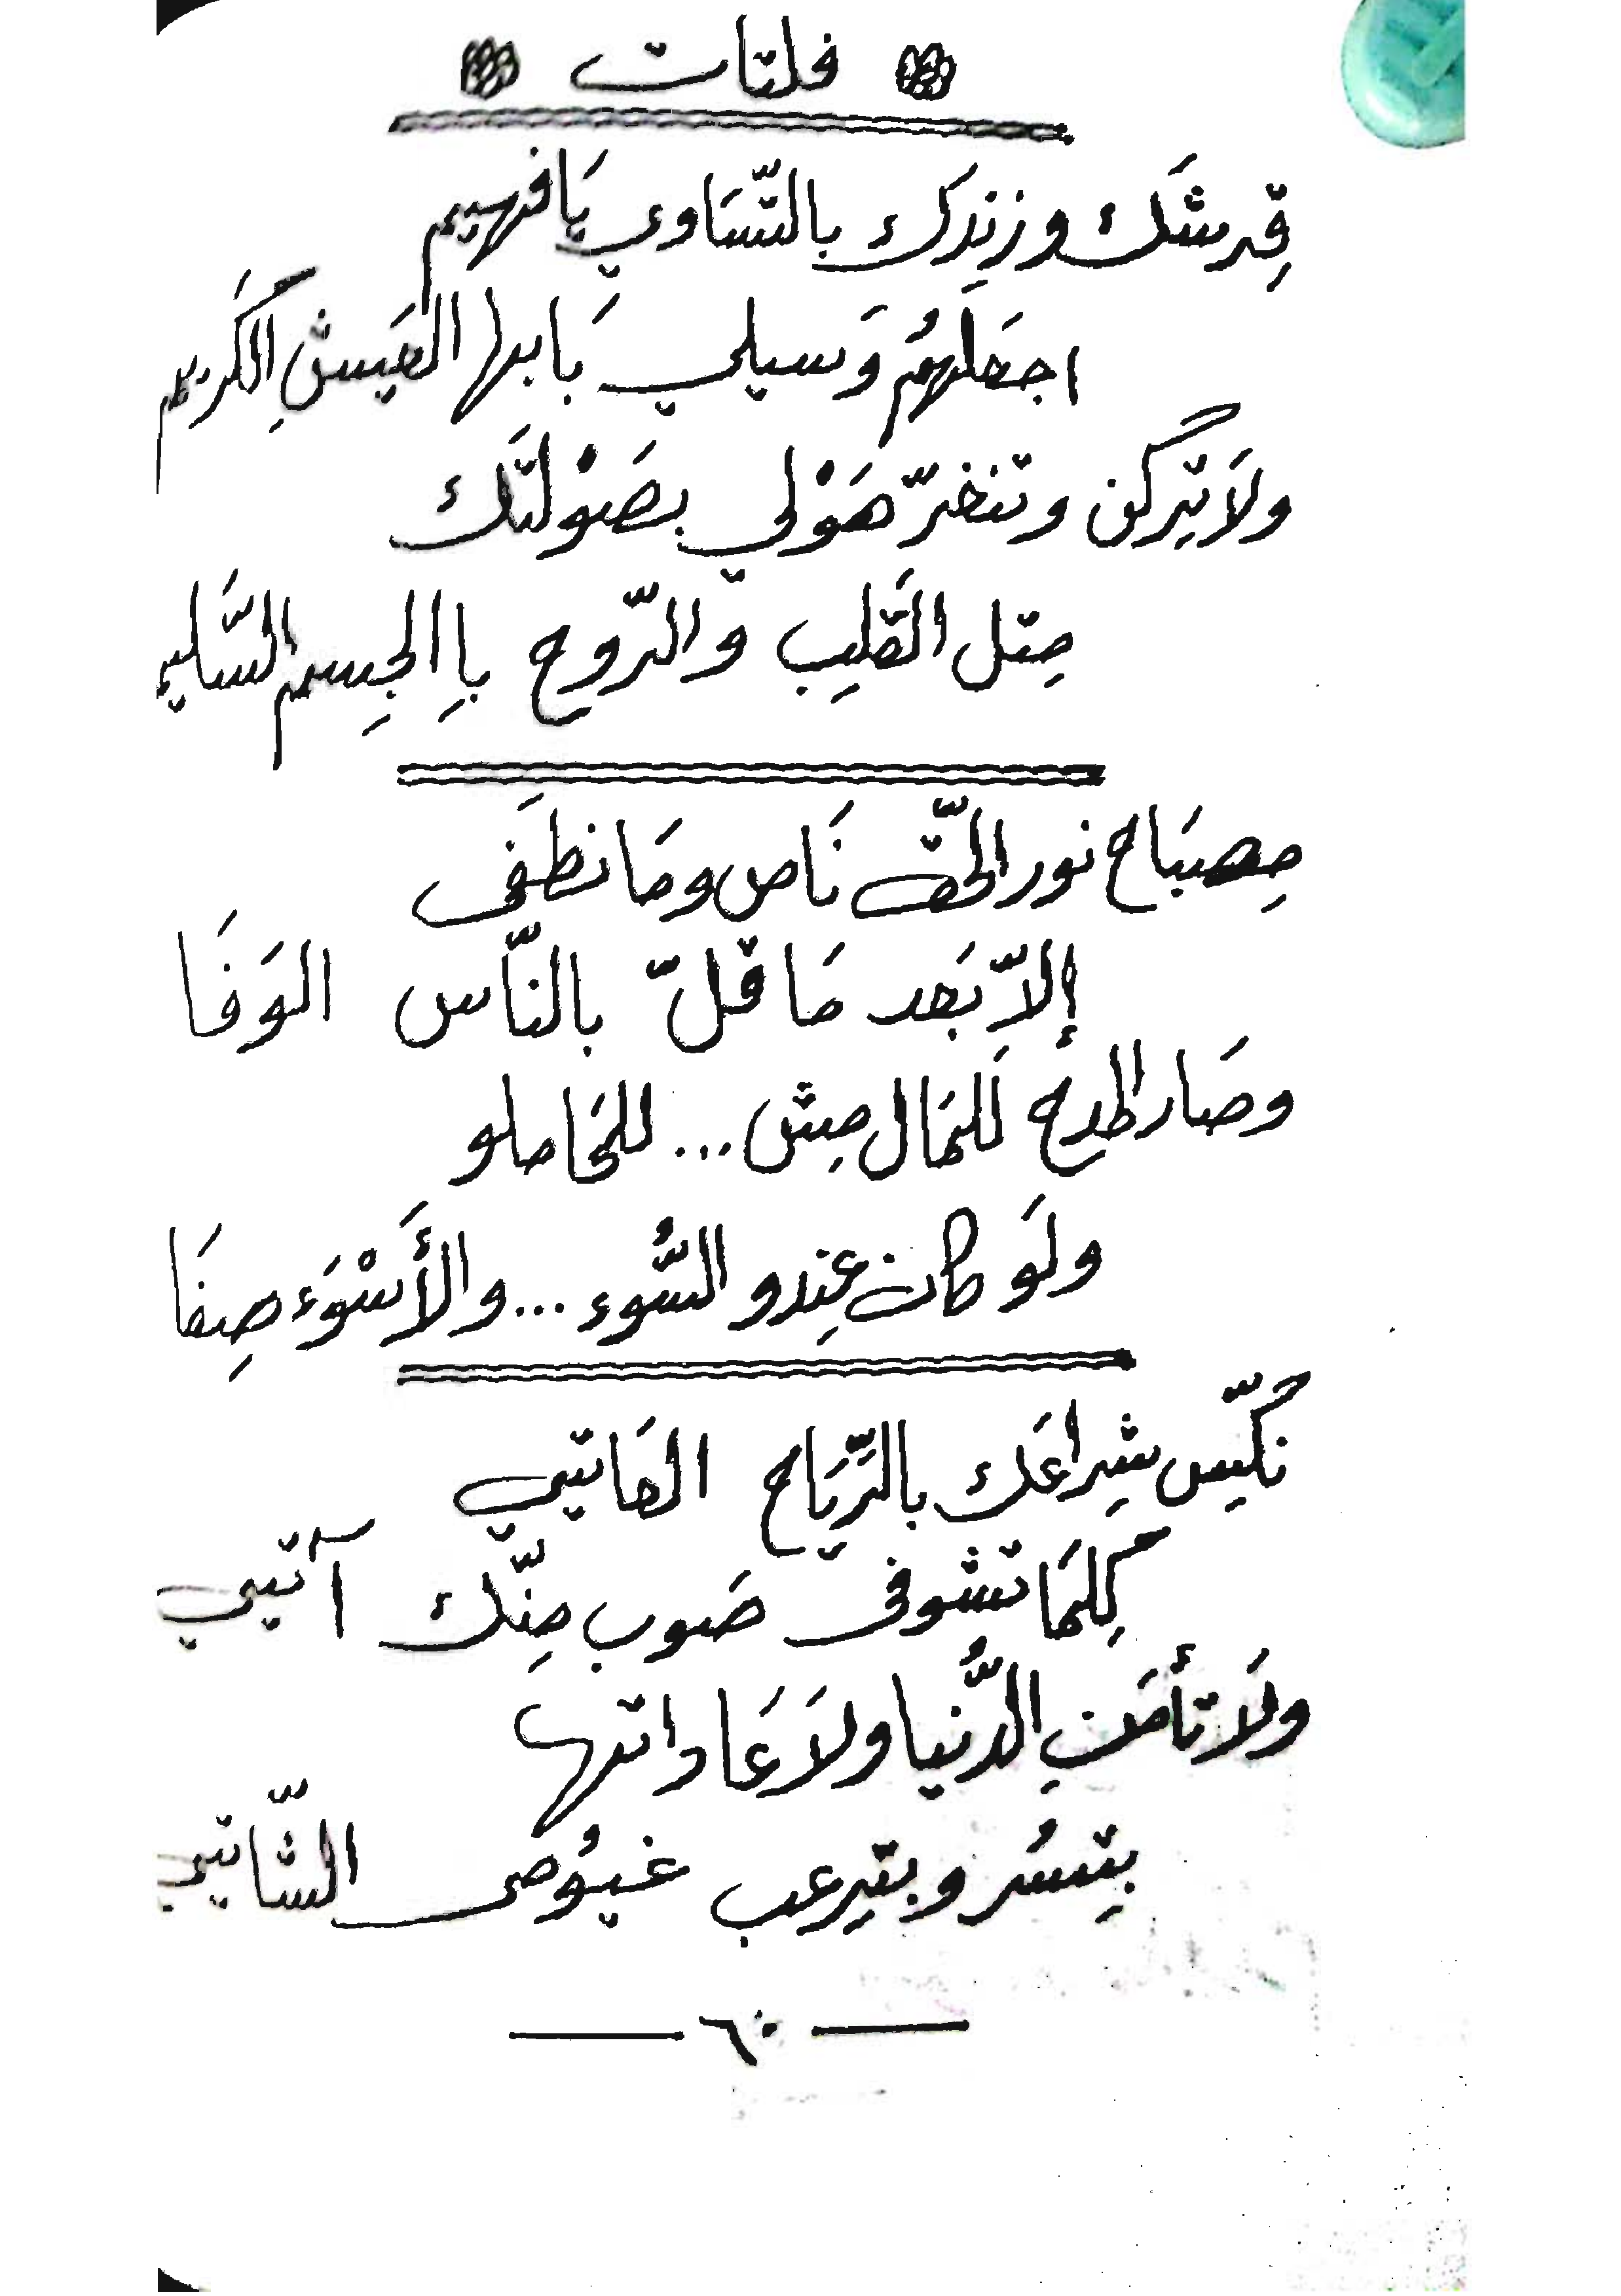 فلتات
قِرشَك وزِندَك بالتّسَاوي يَا فهيم
اجعَلهُم وَسيلي بَابها العَيشِ الكَريم
ولَا تِركن وتنغرّ هَوْلي بصَوْلتَك
مِتل القَلِب والرّوح باِالجِسم السَّليم
مِصبَاح نور الحَقّ نَاص ومَا نطفَى
إلاّ بَعد مَا قلّ بالنَّاس الوَفَا
وصَار المدح لَلمَال مِش ... للحَاملو
ولَو كان عِندو السُّوء ... والأَسْوَء صِفَا
نَكِّس شِراعَك بالرِّيَاح العَاتيي
كِلمَا تشوفى صَوب مِنّك آتيي
ولَا تأمَنِ الدُّنيا ولَا عَاداتها
بِتسُر وبتِرعب غيُوم الشّاتيي
٦٠